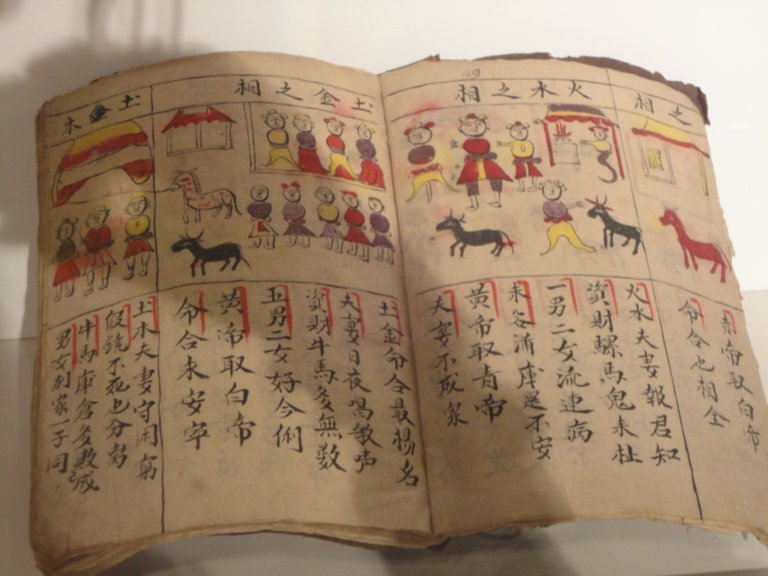 之相
赤帝取白帝
令合也相全
火水之相
火水夫妻報君知
資財騾馬鬼未扯
一男二女流連病
求谷滿庫是不安
黄帝取青帝
夫妻不成家
土金之相
土金命令最揚名
夫妻日夜唱
資財牛馬多無数
五男二女好今俐
黄帝取白帝
令合未安寜
土木
土木夫妻守困窮
假饒不死也分离
牛馬庫倉多敗
男女别家一子同